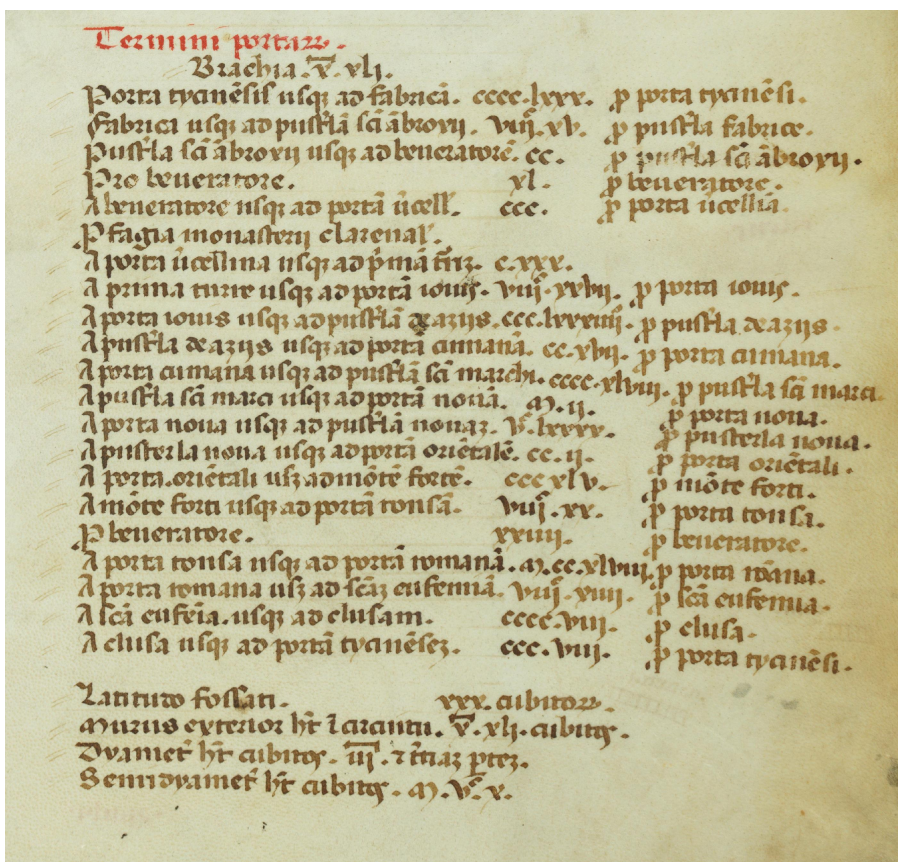 Termini portarꝝ.
Brachia. v̅. xli.
Porta tycinēsis usqꝫ ad fabricā. cccc.lxxx. ꝓ porta tycinēsi.
Fabrica usqꝫ ad pust̄lā sc̄i ābroxij. viiijͨ.xv. ꝓ pust̄la fabrice.
Pust̄la sc̄i ābroxij usqꝫ ad beueratorē. cc. ꝓ pust̄la sc̄i ābroxij.
Pro beueratore. xl. ꝓ beueratore.
A beueratore usqꝫ ad portā u̅cell̄. ccc. ꝓ porta u̅cellīa.
P fagia monasterij clareual̄.
A porta u̅cellina usqꝫ ad p̄mā t̄rīꝫ. c.xxx.
A prima turre usqꝫ ad portā iouis. viiijͨ.xxvij. ꝓ porta iouis.
A porta iouis usqꝫ ad pust̄lā de azijs. ccc.lxxxiiij. ꝓ pust̄la de azijs.
A pust̄la de azijs usqꝫ ad portā cumanā. cc.xvij. ꝓ porta cumana.
A porta cumana usqꝫ ad pust̄lā sc̄i marchi. cccc.xlviii. ꝓ pust̄la sc̄i marci.
A pust̄la sc̄i marci usqꝫ ad portā nouā. m.ij. ꝓ porta noua.
A porta noua usqꝫ ad pust̄lā nouaꝫ. vͨ.lxxxv. ꝓ pusterla noua.
A pusterla noua usqꝫ ad portā oriētalē. cc.ij. ꝓ porta oriētali.
A porta.oriētali usꝫ ad mōtē fortē. ccc xlv. ꝓ mōte forti.
A mōte forti usqꝫ ad portā tonsā. viijͨ.xx. ꝓ porta tonsa.
P beueratore. xxiiij. ꝓ beueratore.
A porta tonsa usqꝫ ad portā romanā. m.cc.xlviij. ꝓ porta rōana.
A porta romana usꝫ ad sc̄aꝫ eufemiā. viijͨ.xiiij. ꝓ sc̄a eufemia.
A sc̄a eufēia. usqꝫ ad clusam. cccc.viii. ꝓ clusa.
A clusa usqꝫ ad portā tycinēseꝫ. ccc.viij. ꝓ porta tycinēsi.
Latitudo fossati. xxx. cubitoꝝ.
Murus exterior ht̄ ī circuitu. v̅.xlj. cubitos.
Dyamet̄ ht̄ cubitos. iij̅. ⁊ t̄ciaꝫ ꝑteꝫ.
Semidyamet̄ ht̄ cubitos. m.vͨ.v.